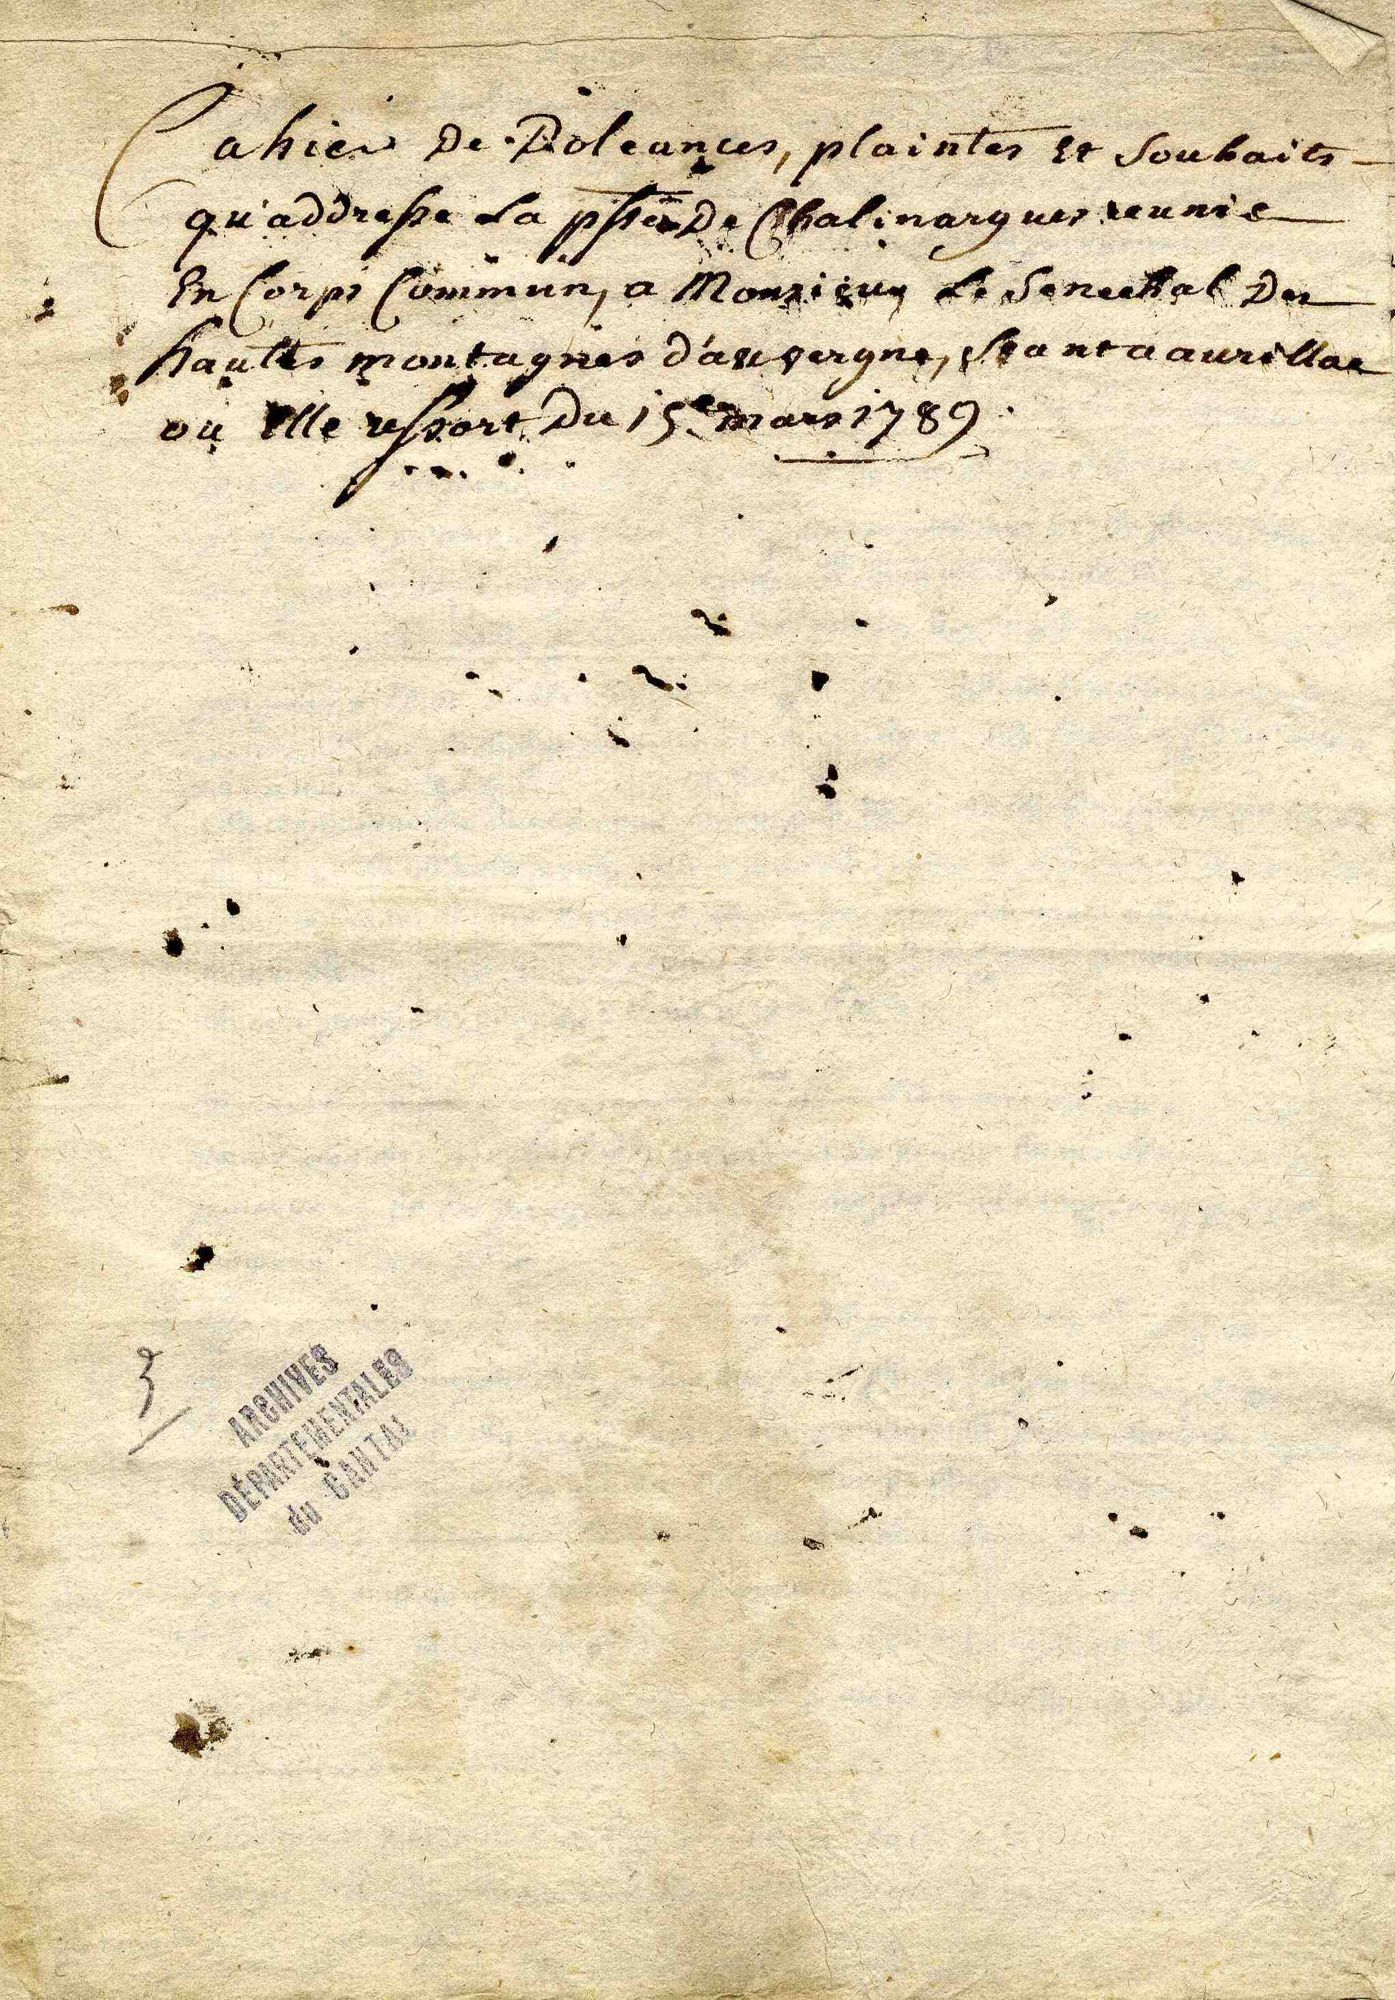 Cahier De Doleances, plaintes Et Souhaits
qu'addresse La psse De Chalinargues reunie
En Corps Commun, a Monsieur Le Senechal Des
hautes montagnes d'auvergne, Seant a aurillac
ou Elle ressort Du 15e mars 1789.
3
ARCHIVES
DÉPARTEMENTALES
du CANTAL